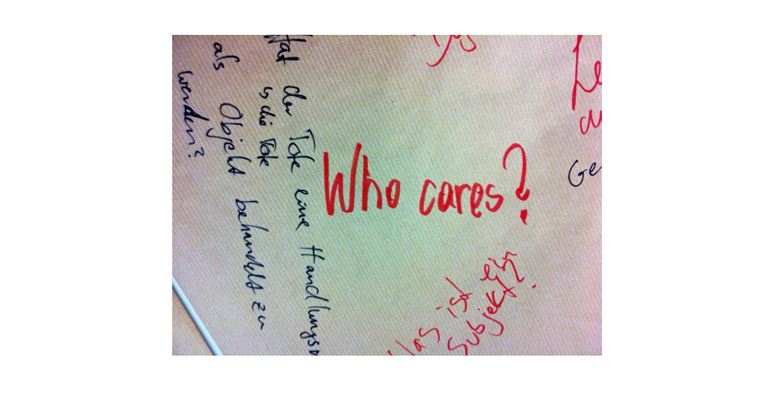 Hat der Tote eine Handlungs
↳ die Tote
als Objekt behandelt zu
werden?
Who cares?
Was ist ein
Subjekt?
Ge